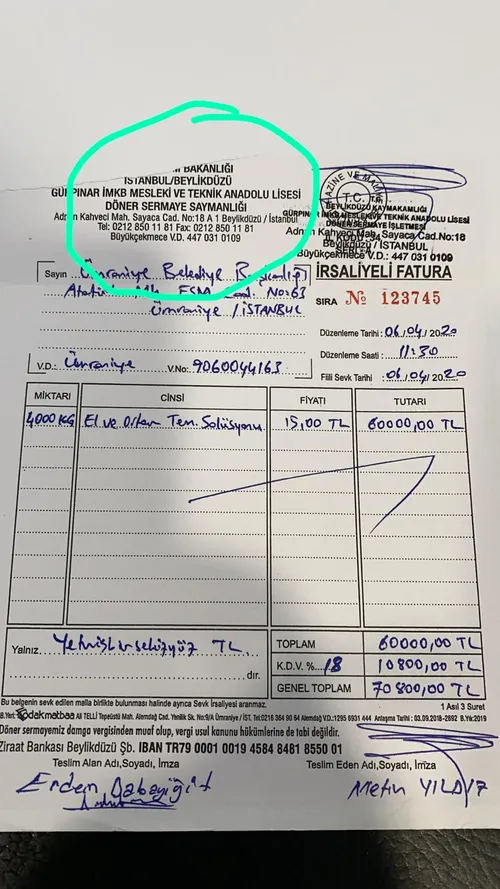 BAKANLIĞI
İSTANBUL/BEYLİKDÜZÜ
GÜRPINAR İMKB MESLEKİ VE TEKNİK ANADOLU LİSESİ
DÖNER SERMAYE SAYMANLIĞI
Adnan Kahveci Mah. Sayaca Cad. No:18 A 1 Beylikdüzü / İstanbul
Tel: 0212 850 11 81 Fax: 0212 850 11 81
Büyükçekmece V.D. 447 031 0109
T.C.
BEYLİKDÜZÜ KAYMAKAMLIĞI
GÜRPINAR İMKB MESLEKİ VE TEKNİK ANADOLU LİSESİ
DÖNER SERMAYE İŞLETMESİ
Adnan Kahveci Mah. Sayaca Cad.No:18
Beylikdüzü / İSTANBUL
Büyükçekmece V.D.: 447.031.0109
İRSALİYELİ FATURA
SIRA № 123745
Sayın Ümraniye Belediye Başkanlığı
No:63
Ümraniye / İSTANBUL
Düzenleme Tarihi : 06/04/2020
Düzenleme Saati : 11:30
V.D.: Ümraniye V.No: 9060044163
Fiili Sevk Tarihi : 06/04/2020
MİKTARI CİNSİ FİYATI TUTARI
4000 KG El ve Ortam Tem. Solüsyonu 15,00 TL 60000,00 TL
Yalnız Yetmişbinsekizyüz TL dır.
TOPLAM 60000,00 TL
K.D.V. %18 10800,00 TL
GENEL TOPLAM 70800,00 TL
Bu belgenin sevk edilen malla birlikte bulunması halinde ayrıca Sevk İrsaliyesi aranmaz. 1 Asıl 3 Suret
B.Yeri: odakmatbaa Ali TELLİ Tepeüstü Mah. Alemdağ Cad. Yenilik Sk. No:9/A Ümraniye / İST. Tel:0216 364 90 64 Alemdağ V.D.:1295 6931 444 Anlaşma Tarihi: 03.09.2018-2692 B.Yılı:2019
Döner sermayemiz damga vergisinden muaf olup, vergi usul kanunu hükümlerine de tabi değildir.
Ziraat Bankası Beylikdüzü Şb. IBAN TR79 0001 0019 4584 8481 8550 01
Teslim Alan Adı,Soyadı, İmza Teslim Eden Adı,Soyadı, İmza
Erdem Metin YILDIZ